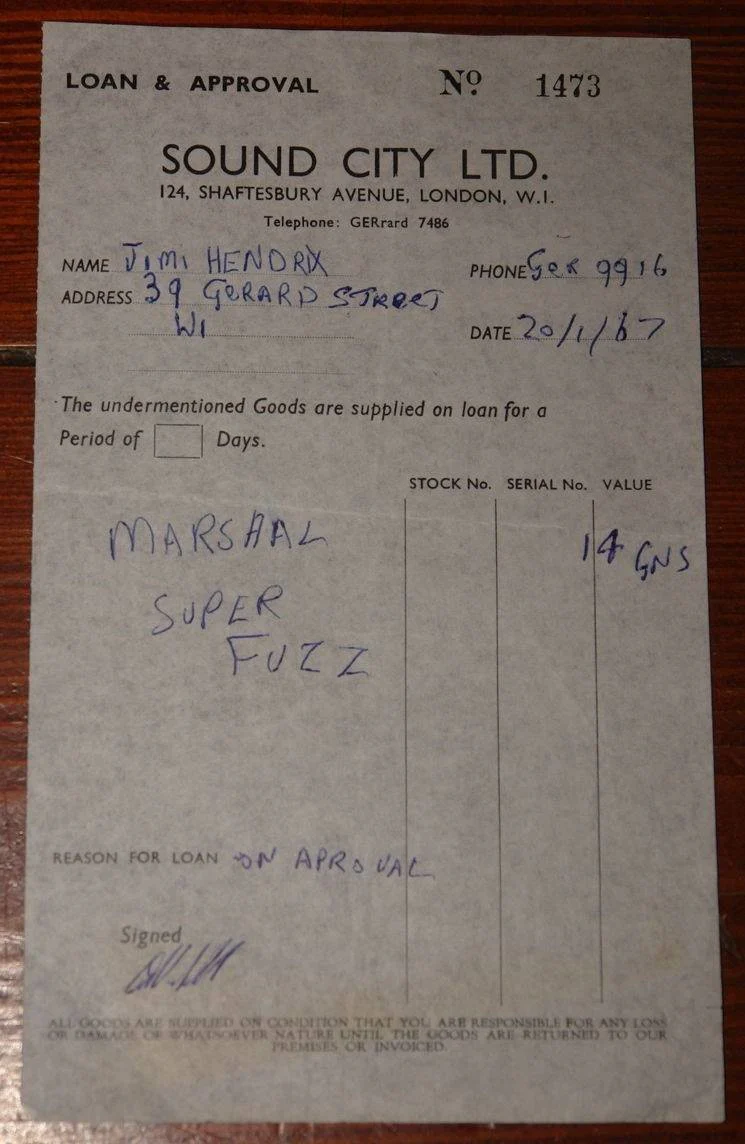 LOAN & APPROVAL Nº 1473
SOUND CITY LTD.
124, SHAFTESBURY AVENUE, LONDON, W.1.
Telephone: GERrard 7486
NAME JIMI HENDRIX PHONE GER 9916
ADDRESS 39 GERARD STREET
W1 DATE 20/1/67
The undermentioned Goods are supplied on loan for a
Period of Days.
STOCK No. SERIAL No. VALUE
MARSHAL 14 GNS
SUPER
FUZZ
REASON FOR LOAN ON APROVAL
Signed
ALL GOODS ARE SUPPLIED ON CONDITION THAT YOU ARE RESPONSIBLE FOR ANY LOSS
OR DAMAGE OF WHATSOEVER NATURE UNTIL THE GOODS ARE RETURNED TO OUR
PREMISES OR INVOICED.